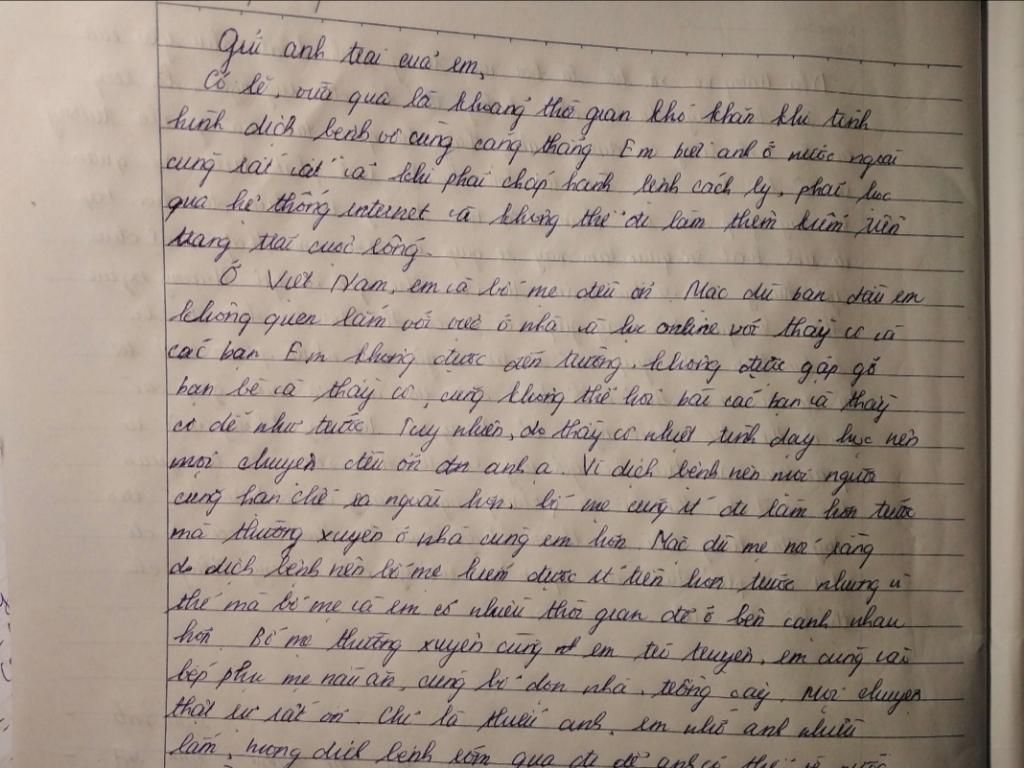 Gửi anh trai của em,
Có lẽ, vừa qua là khoảng thời gian khó khăn khi tình
hình dịch bệnh vô cùng căng thẳng. Em biết anh ở nước ngoài
cũng rất vất vả khi phải chấp hành lệnh cách ly, phải học
qua hệ thống internet và không thể đi làm thêm kiếm tiền
trang trải cuộc sống.
Ở Việt Nam, em và bố mẹ đều ổn. Mặc dù ban đầu em
không quen lắm với việc ở nhà và học online với thầy cô và
các bạn. Em không được đến trường, không được gặp gỡ
bạn bè và thầy cô, cũng không thể hỏi bài các bạn và thầy
cô dễ như trước. Tuy nhiên, do thầy cô nhiệt tình dạy học nên
mọi chuyện đều ổn anh ạ. Vì dịch bệnh nên mọi người
cũng hạn chế ra ngoài hơn, bố mẹ cũng ít đi làm hơn trước
mà thường xuyên ở nhà cùng em hơn. Mặc dù mẹ nói rằng
do dịch bệnh nên bố mẹ kiếm được ít tiền hơn trước nhưng vì
thế mà bố mẹ và em có nhiều thời gian để ở bên cạnh nhau
hơn. Bố mẹ thường xuyên cùng em trò truyện, em cùng vào
bếp phụ mẹ nấu ăn, cùng bố dọn nhà, trồng cây. Mọi chuyện
thật sự rất ổn. Chỉ là thiếu anh, em nhớ anh nhiều
lắm, mong dịch bệnh sớm qua đi để anh có thể về nước